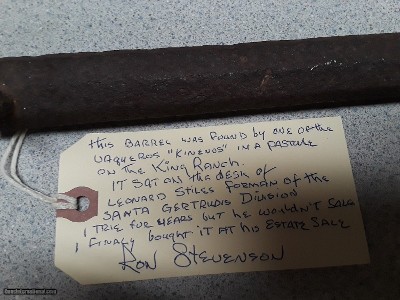 THIS BARREL WAS FOUND BY ONE OF THE
VAQUEROS "KINENOS" IN A PASTURE
ON THE KING RANCH.
IT SAT ON THE DESK OF
LEONARD STILES FORMAN OF THE
SANTA GERTRUDIS DIVISION
I TRIE FOR YEARS BUT HE WOULDN'T SALE
I FINALY BOUGHT IT AT HIS ESTATE SALE
RON STEVENSON